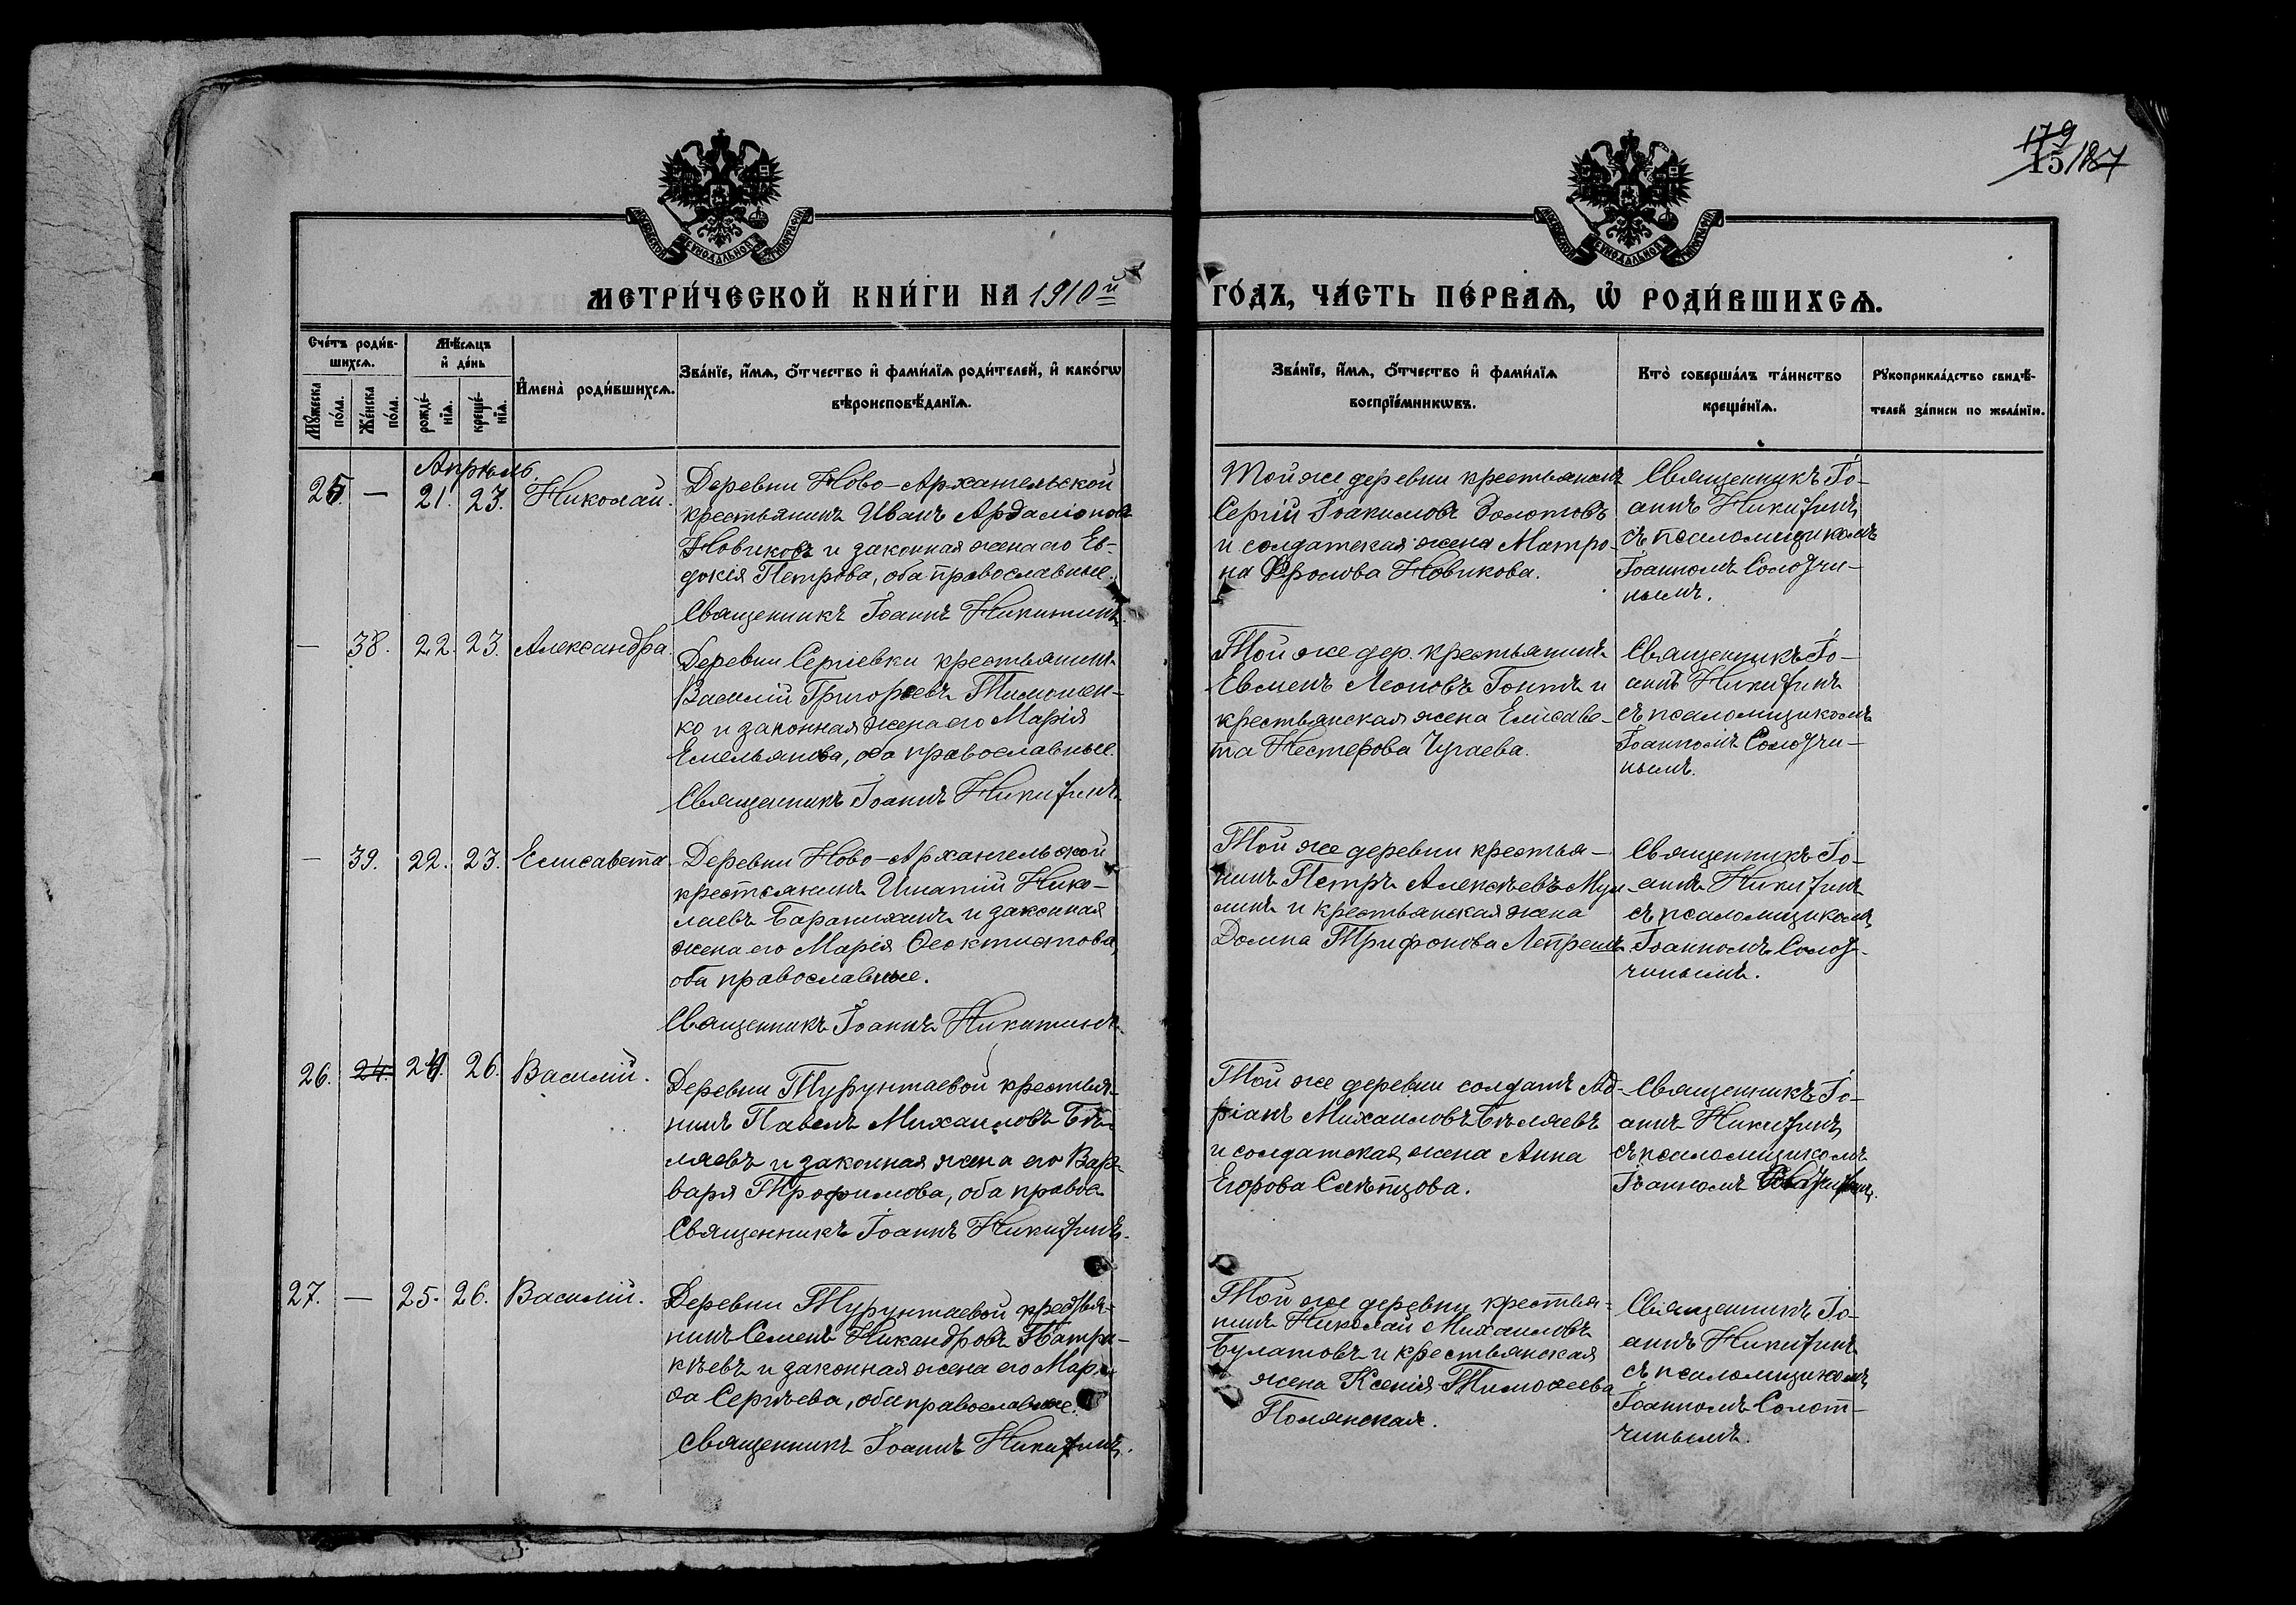 179
15/187
МЕТРИ́ЧЕСКОЙ КНИ́ГИ НА 1910й ГО́ДЪ, ЧА́СТЬ ПЕ́РВАѦ, Ѡ҆ РОДИ́ВШИХСѦ.
Сче́тъ роди́в-
шихсѧ.
Мꙋ́жеска
по́ла.
Же́нска
по́ла.
Мѣ́сѧцъ
и҆ де́нь
рожде́-
нїѧ.
креще́-
нїѧ.
И҆мена̀ роди́вшихсѧ.
Зва́нїе, и҆́мѧ, ѻ҆́тчество и҆ фами́лїѧ роди́телей, и҆ како́гѡ
вѣроисповѣ́данїѧ.
Зва́нїе, и҆́мѧ, ѻ҆́тчество и҆ фами́лїѧ
воспрїе́мникѡвъ.
Кто̀ соверша́лъ та́инство
креще́нїѧ.
Рꙋкоприкла́дство свидѣ́-
телей за́писи по жела́нїю.
Апрѣль
25. — 21. 23. Николай.
Деревни Ново-Архангельской
крестьянинъ Иванъ Ардаліоновъ
Новиковъ и законная жена его Ев-
докія Петрова, оба православные.
Священникъ Іоаннъ Никитинъ.
Той же деревни крестьянинъ
Сергій Іоакимовъ Золотовъ
и солдатская жена Матро-
на Фролова Новикова.
Священникъ Іо-
аннъ Никитинъ
съ псаломщикомъ
Іоанномъ Солотчи-
нымъ.
— 38. 22. 23. Александра.
Деревни Сергіевки крестьянинъ
Василій Григорьевъ Тимошен-
ко и законная жена его Марія
Емельянова, оба православные.
Священникъ Іоаннъ Никитинъ.
Той же дер. крестьянинъ
Евменъ Леоновъ Гонтъ и
крестьянская жена Елисаве-
та Нестерова Чугаева.
Священникъ Іо-
аннъ Никитинъ
съ псаломщикомъ
Іоанномъ Солотчи-
нымъ.
— 39. 22. 23. Елисавета
Деревни Ново-Архангельской
крестьянинъ Ипатій Нико-
лаевъ и законная
жена его Марія Ѳеоктистова,
оба православные.
Священникъ Іоаннъ Никитинъ.
Той же деревни крестья-
нинъ Петръ Алексѣевъ
и крестьянская жена
Домна Трифонова
Священникъ Іо-
аннъ Никитинъ
съ псаломщикомъ
Іоанномъ Солот-
чинымъ.
26. 24. 24. 26. Василій.
Деревни Турунтаевой крестья-
нинъ Павелъ Михаиловъ Бѣ-
ляевъ и законная жена его Вар-
вара Трофимова, оба правос.
Священникъ Іоаннъ Никитинъ.
Той же деревни солдатъ Ад-
ріанъ Михаиловъ Бѣляевъ
и солдатская жена Анна
Егорова Слѣпцова.
Священникъ Іо-
аннъ Никитинъ
съ псаломщикомъ
Іоанномъ
27. — 25. 26. Василій.
Деревни Турунтаевой крестья-
нинъ Семенъ Никандровъ Патри-
кѣевъ и законная жена его Мар-
ѳа Сергѣева, оба православные.
Священникъ Іоаннъ Никитинъ.
Той же деревни крестья-
нинъ Николай Михаиловъ
Булатовъ и крестьянская
жена Ксенія Тимоѳеева
Полянская.
Священникъ Іо-
аннъ Никитинъ
съ псаломщикомъ
Іоанномъ Солот-
чинымъ.